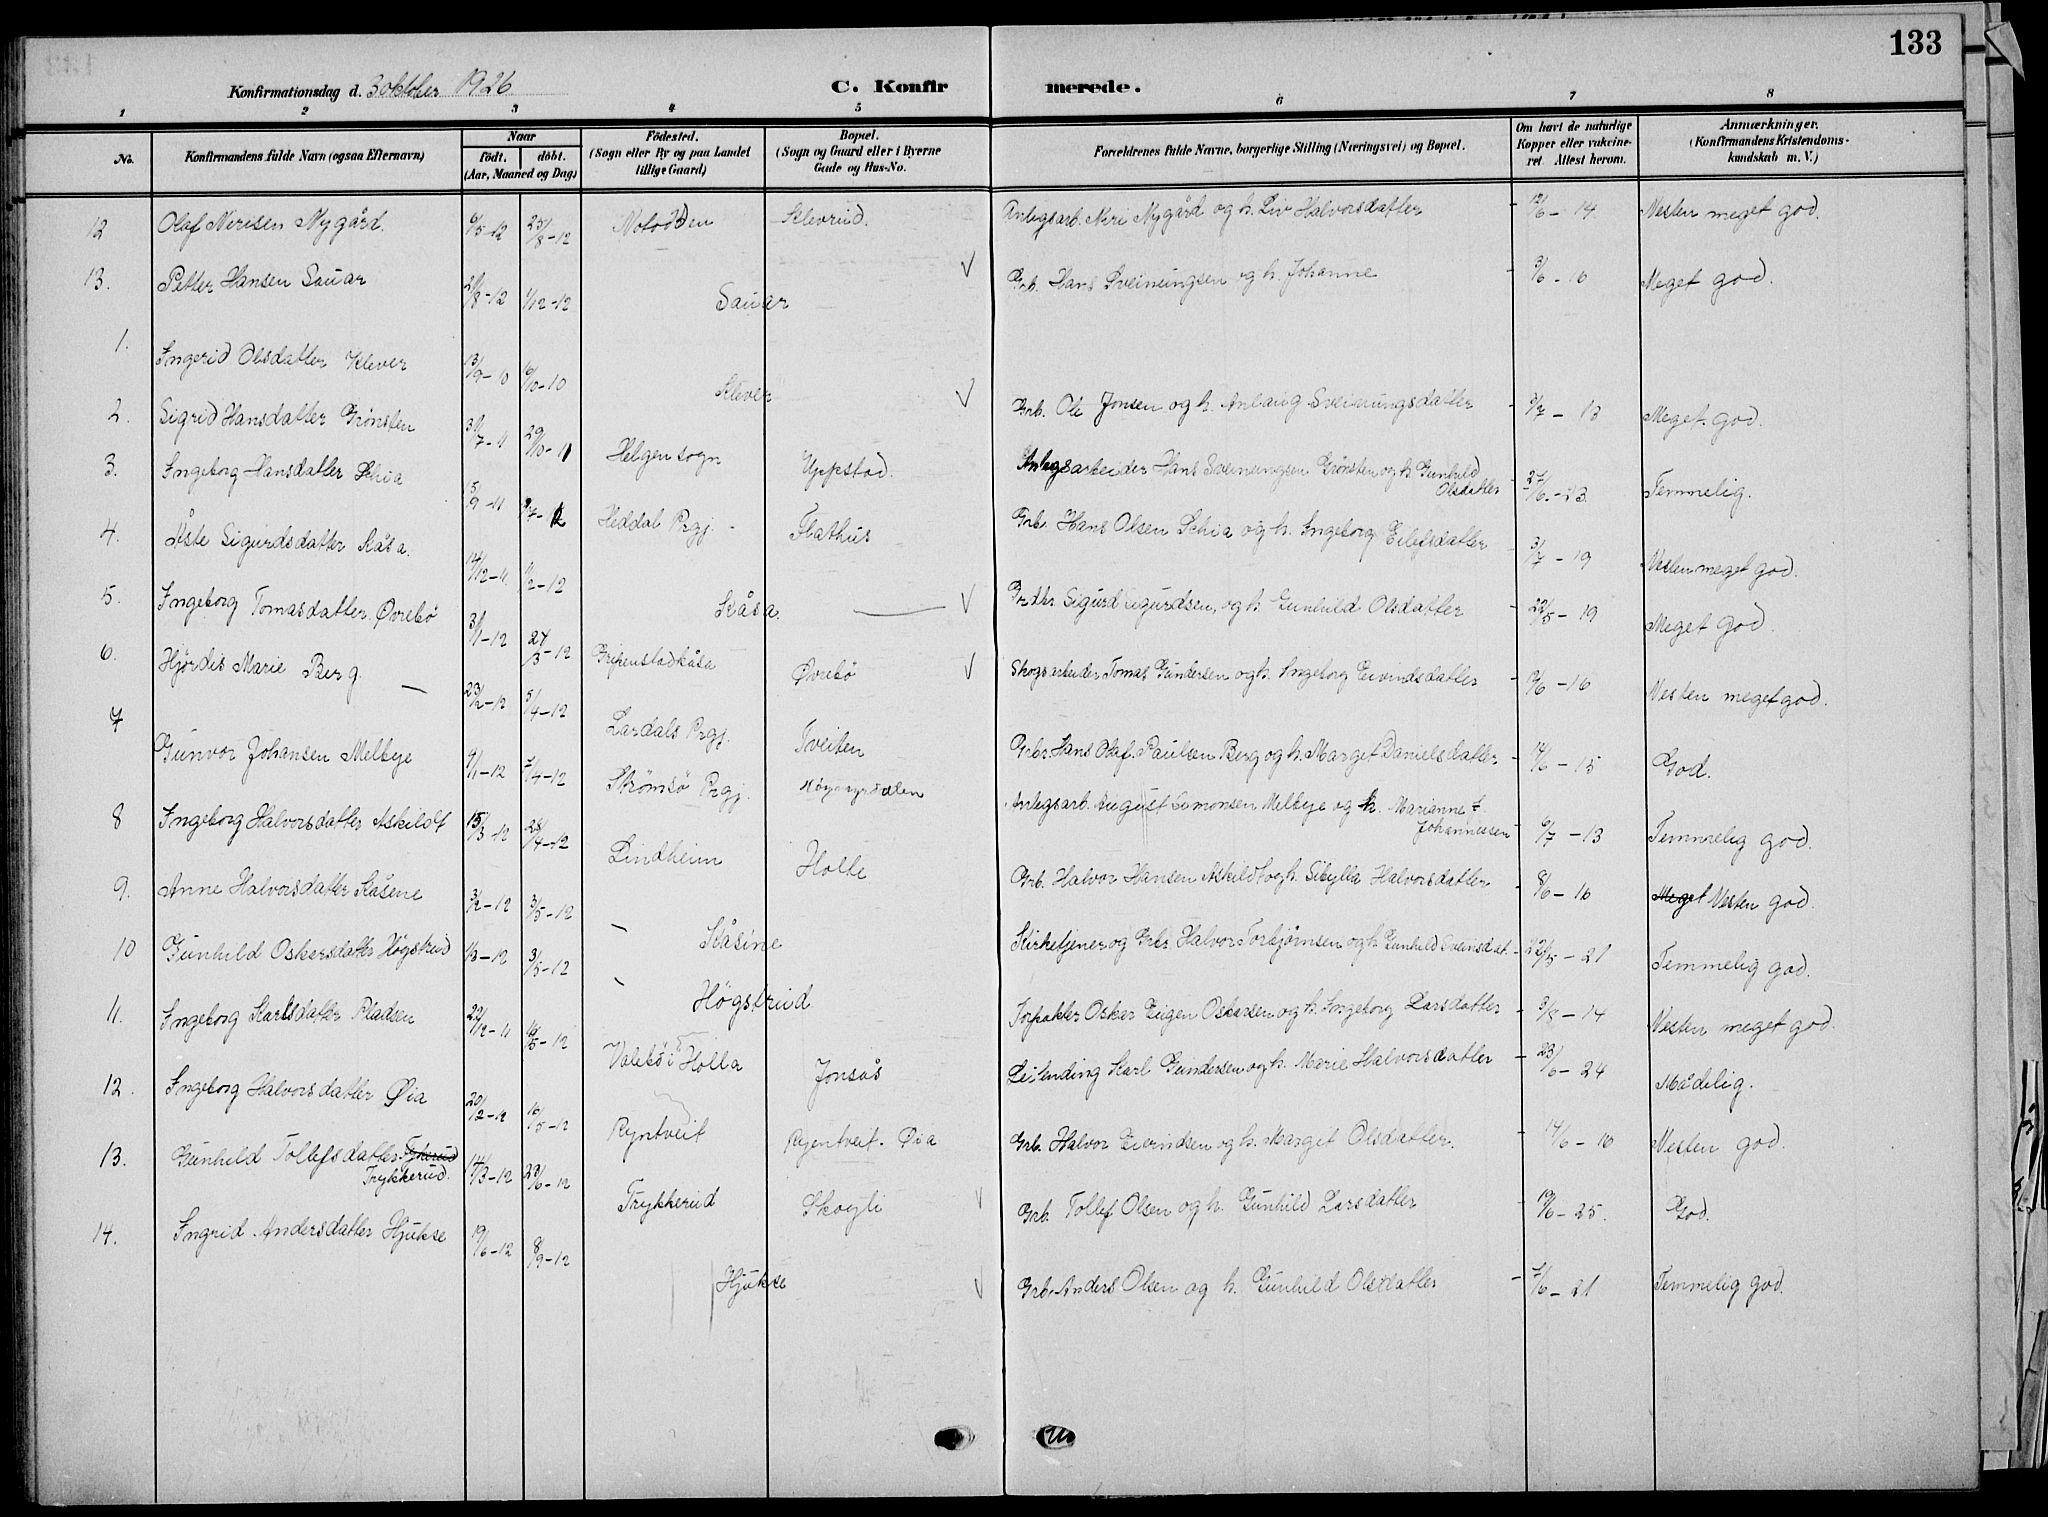 133
Konfirmationsdag d. 3 oktober 1926
C. Konfirmerede.
1 2 3 4 5 6 7 8
No.
Konfirmandens fulde Navn (ogsaa Efternavn)
Naar
født. døbt.
(Aar, Maaned og Dag)
Fødested.
(Sogn eller By og paa Landet
tillige Gaard)
Bopæl.
(Sogn og Gaard eller i Byerne
Gade og Hus-No.
Forældrenes fulde Navne, borgerlige Stilling (Næringsvei) og Bopæl.
Om havt de naturlige
Kopper eller vakcine-
ret Attest herom.
Anmærkninger.
(Konfirmandens Kristendoms-
kundskab m. V.)
12 Olaf Nerisen Nygård. 6/5-12 25/8-12 Notodden Klevrud. Anlegsarb. Neri Nygård og h. Liv Halvorsdatter 12/6-14 Nesten meget god.
13. Petter Hansen Sauar 21/8-12 1/12-12 Sauar Grb. Hans Sveinungsen og h. Johanne 3/6-16 Meget god.
1. Ingerid Olsdatter Klever 13/9-10 16/10-10 Klever Grb. Ole Jonsen og h. Anlaug Sveinungsdatter 3/7-13 Meget god.
2. Sigrid Hansdatter Grönsten 31/7-11 29/10-11 Helgen sogn Uppstad. Anlegsarbeider Hans Sveinungsen Grönsten og h. Gunhild
Olsdatter 27/6-23 Temmelig.
3. Ingeborg Hansdatter Schia 5/9-11 Heddal Prgj. - Flathus Grb. Hans Olsen Schia og h. Ingeborg Eilefsdatter 3/7-19 Nesten meget god.
4. Åste Sigurdsdatter Kåsa. 14/12-11 1/2-12 Kåsa. Sigurd Sigurdsen, og h. Gunhild Olsdatter 22/5-19 Meget god.
5. Ingeborg Tomasdatter Övrebö 31/1-12 24/3-12 Gripenstadkåsa Övrebö Skogsarbeider Tomas Gundersen og h. Ingeborg Eivindsdatter 19/6-16 Nesten meget god.
6. Hjördis Marie Berg. 23/2-12 5/4-12 Lardals Prgj. Tveiten Grbr. Hans Olaf Paulsen Berg og h. Marget Danielsdatter 14/6-15 God.
7 Gunvor Johansen Melbye 4/1-12 7/4-12 Strömsö Prgj. Anlegsarb. August Simonsen Melbye og h. Marianne f.
Johannessen 6/7-13 Temmelig god.
8 Ingeborg Halvorsdatter Askildt 15/3-12 28/4-12 Lindheim Holte Grb. Halvor Hansen Askildt og h. Sibylla Halvorsdatter 8/6-16 Meget Nesten god.
9. Anne Halvorsdatter Kåsene 3/2-12 3/5-12 - Kåsine Kirketjener og Grbr. Halvor Torbjörnsen og h. Gunhild Svensdat. 26/5-21 Temmelig god.
10 Gunhild Oskarsdatter Högstrud 1/3-12 3/5-12 - Högstrud Forpakter Oskar Eugen Oskarsen og h. Ingeborg Larsdatter 9/8-14 Nesten meget god.
11. Ingeborg Karlsdatter Pladsen 22/12-11 16/5-12 Valebö i Holla Jonsås Leilending Karl Gundersen og h. Marie Halvorsdatter 23/6-24 Mådelig.
12. Ingeborg Halvorsdatter Öia 20/2-12 16/5-12 Ryntveit Ryentveit. Öia Grb. Halvor Eivindsen og h. Marget Olsdatter. 14/6-16 Nesten god.
13. Gunhild Tollefsdatter
Trykkerud. 14/3-12 23/6-12 Trykkerud Skogli Grb. Tollef Olsen og h. Gunhild Larsdatter 19/6-25. God.
14. Ingrid Andersdatter Hjukse 19/6-12 8/9-12 Hjukse Grb. Anders Olsen og h. Gunhild Olsdatter 7/6-21 Temmelig god.